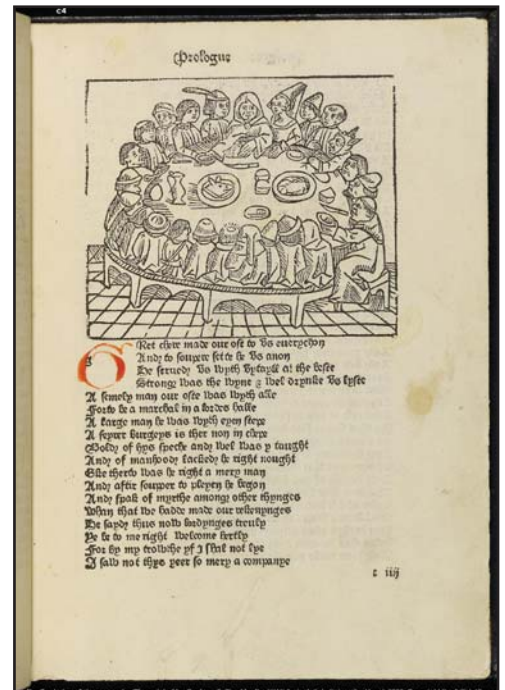 c4
Prologue
GRet chere made our ost to vs euerychon
And to souper sette he vs anon
He serued vs wyth vytayll at the beste
Strong was the wyne & wel drynke vs lyste
A semely man our oste was wyth alle
Forto be a marchal in a lordes halle
A large man he was wyth eyen stepe
A feyrer burgeys is ther non in chepe
Boldy of hys speche and wel was y taught
And of manhody lackedy he right nought
Eke therto was he right a mery man
And aftir soupper to pleyen he began
And spak of myrthe among other thynges
Whan that we hadde made our rekenynges
He sayd thus now lordynges treuly
Ye be to me right welcome hertly
For by my trouthe yf I shal not lye
I saw not thys yeer so mery a companye
c iiij